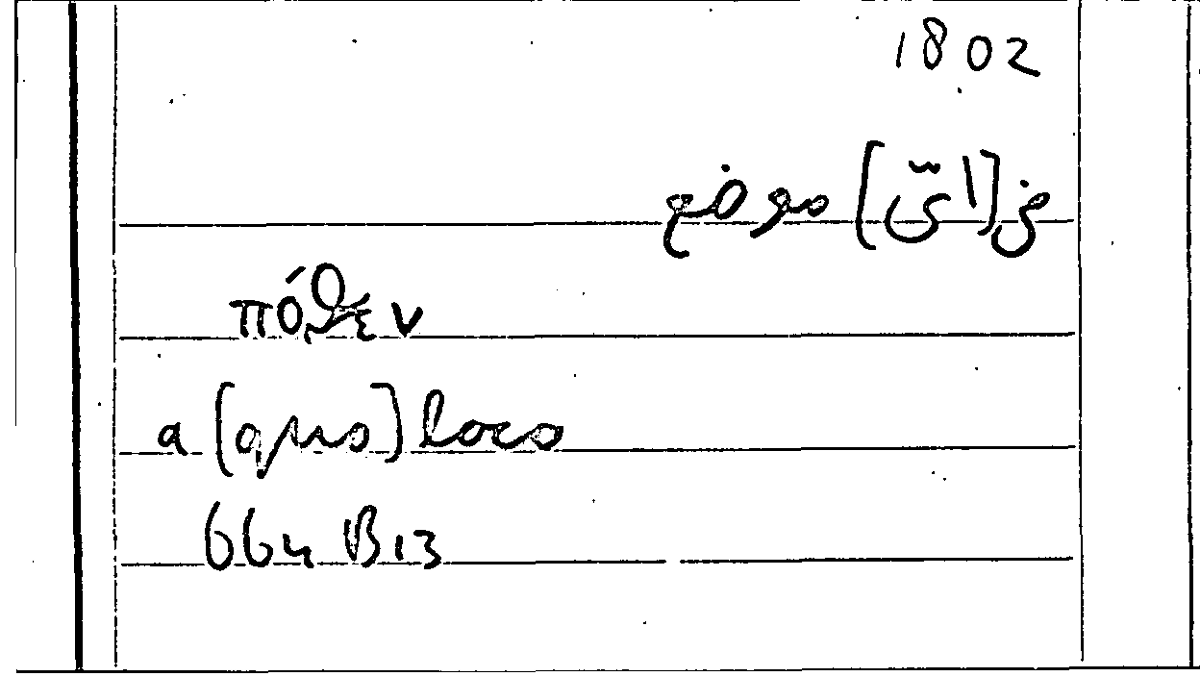 1802
في [ايّ] موضع
πόθεν
a [quo] loco
664 B13